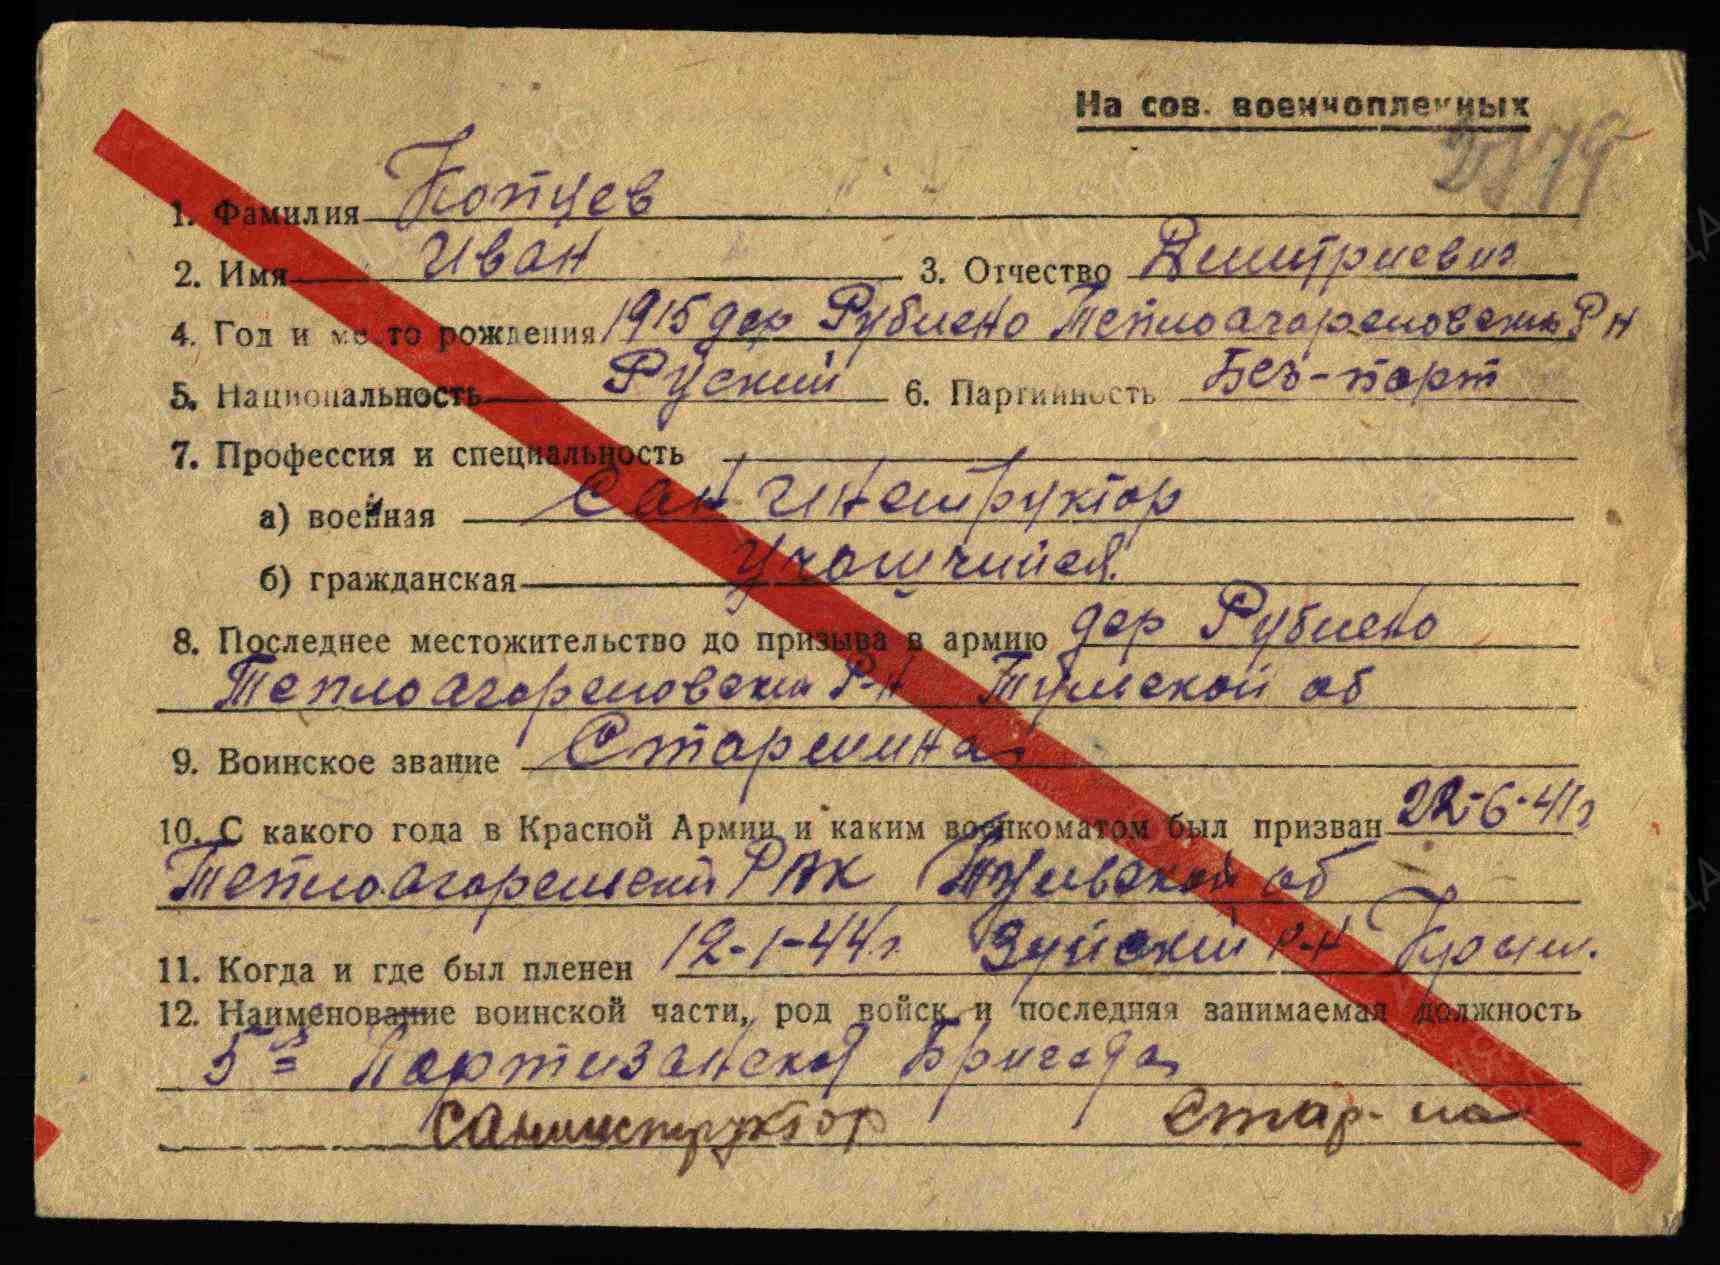 На сов. военнопленных
1. Фамилия Копцев
2. Имя Иван 3. Отчество Дмитриевич
4. Год и место рождения 1915 дер Рубиено Теплоагореловский Р Н
5. Национальность Руский 6. Партийность Без-парт
7. Профессия и специальность
а) военная Сан Инструктор
б) гражданская Учащийся.
8. Последнее местожительство до призыва в армию дер Рубиено
Р-Н Тульской об
9. Воинское звание Старшина
10. С какого года в Красной Армии и каким военкоматом был призван 22-6-41г
РВК об
11. Когда и где был пленен 12-1-44г. Зуйский Р-Н Крым.
12. Наименование воинской части, род войск и последняя занимаемая должность
5я Партизанской Бригада
санинструктор стар-на